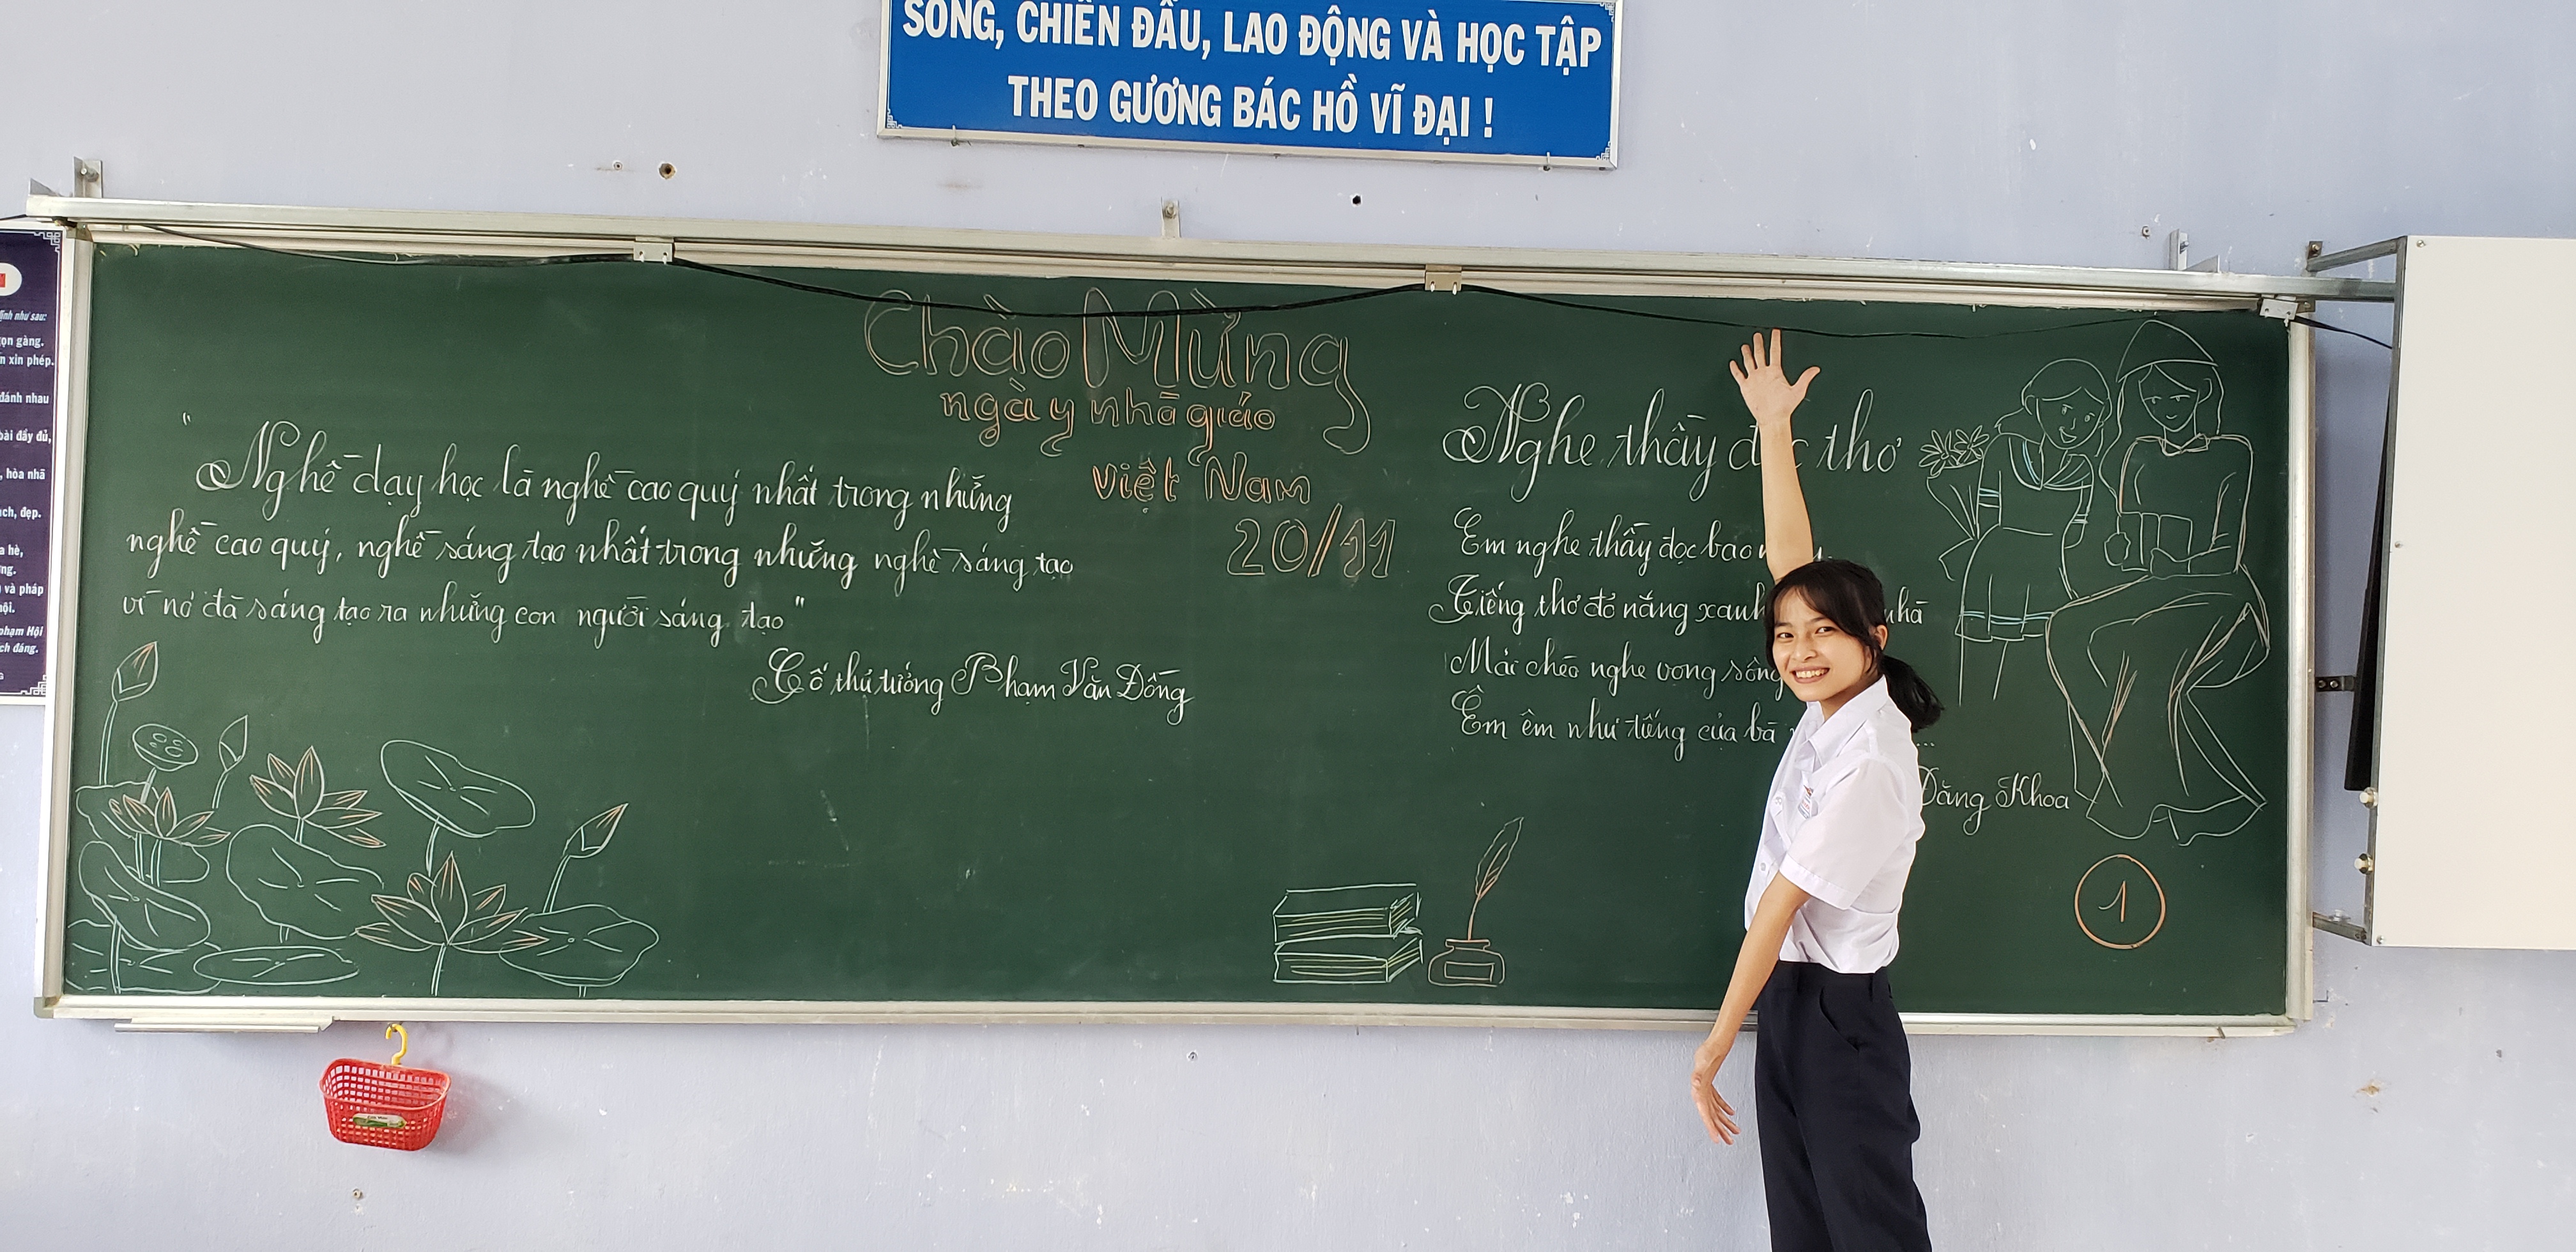 SỐNG, CHIẾN ĐẤU, LAO ĐỘNG VÀ HỌC TẬP
THEO GƯƠNG BÁC HỒ VĨ ĐẠI !
Chào Mừng
ngày nhà giáo
việt Nam
20/11
"Nghề dạy học là nghề cao quý nhất trong những
nghề cao quý, nghề sáng tạo nhất trong những nghề sáng tạo
vì nó đã sáng tạo ra những con người sáng tạo"
Cố thủ tướng Phạm Văn Đồng
Nghe thầy thơ
Em nghe thầy đọc bao
Tiếng thơ đỏ nắng xanh nhà
Mái chèo nghe vọng sông
Êm êm như tiếng của bà
...
Đăng Khoa
1
định như sau:
gọn gàng.
xin phép.
đánh nhau
bài đầy đủ,
, hòa nhã
đẹp.
hè,
và pháp
phạm Hội
đáng.